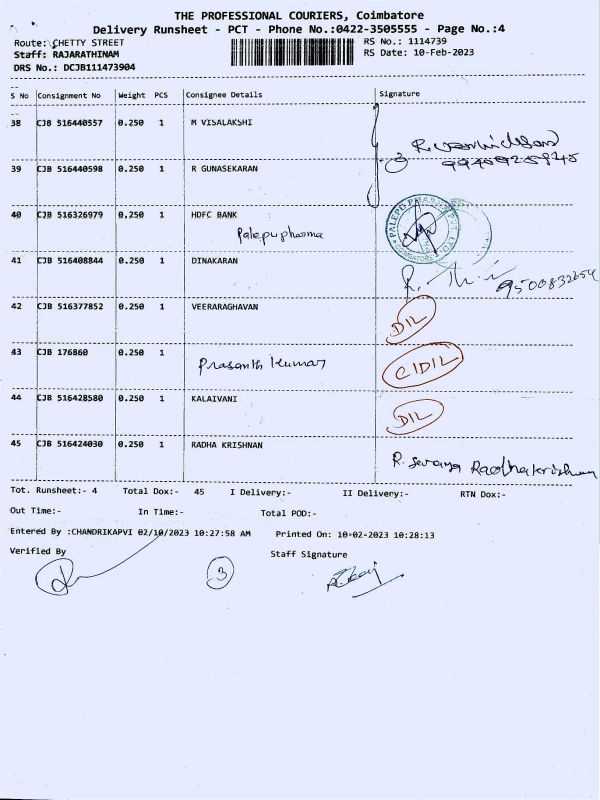 THE PROFESSIONAL COURIERS, Coimbatore
Delivery Runsheet - PCT - Phone No.:0422-3505555 - Page No.:4
Route: CHETTY STREET RS No.: 1114739
Staff: RAJARATHINAM RS Date: 10-Feb-2023
DRS No.: DCJB111473904
S No Consignment No Weight PCS Consignee Details Signature
38 CJB 516440557 0.250 1 M VISALAKSHI
39 CJB 516440598 0.250 1 R GUNASEKARAN
40 CJB 516326979 0.250 1 HDFC BANK
Palepu pharma
41 CJB 516408844 0.250 1 DINAKARAN
9500832654
42 CJB 516377852 0.250 1 VEERARAGHAVAN D/L
43 CJB 176860 0.250 1 Prasanth Kumar C/D/L
44 CJB 516428580 0.250 1 KALAIVANI D/L
45 CJB 516424030 0.250 1 RADHA KRISHNAN
Radhakrishnan
Tot. Runsheet:- 4 Total Dox:- 45 I Delivery:- II Delivery:- RTN Dox:-
Out Time:- In Time:- Total POD:-
Entered By :CHANDRIKAPVI 02/10/2023 10:27:58 AM Printed On: 10-02-2023 10:28:13
Verified By Staff Signature
3